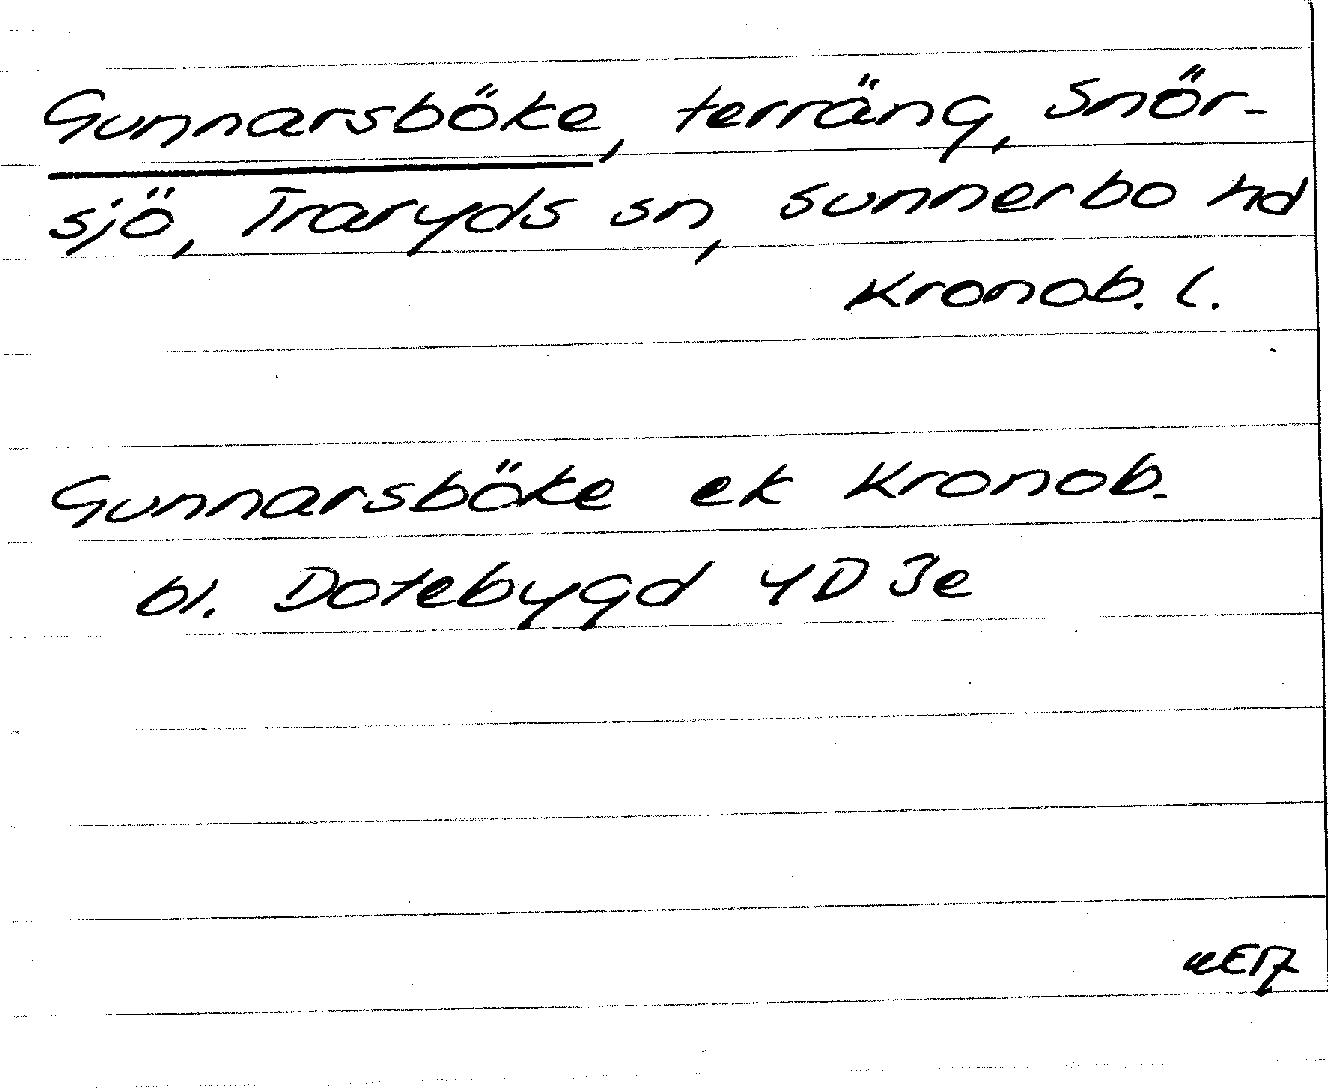 Gunnarsböke, terräng, Snör-
sjö, Traryds sn, Sunnerbo hd
Kronob. l.
Gunnarsböke ek Kronob.
bl. Dotebygd 4D 3e